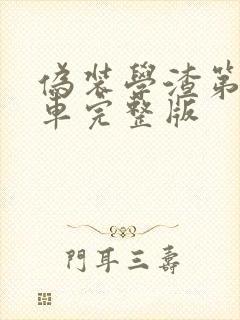 偽裝學渣第
車完整版
門耳三壽